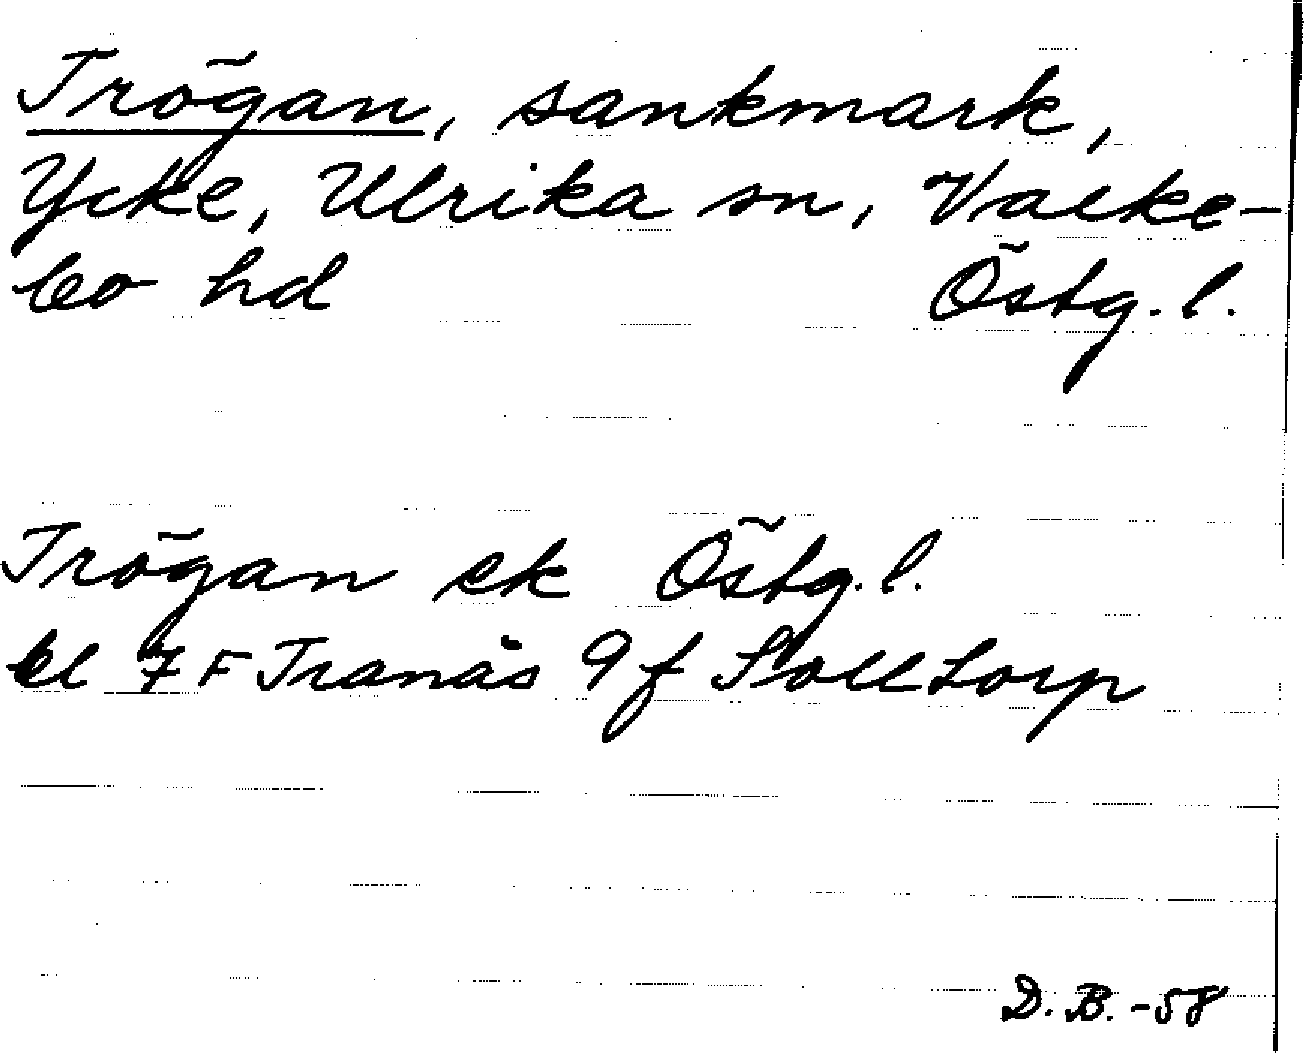 Trögan, sankmark,
Ycke, Ulrika sn, Valke-
bo hd Östg. l.
Trögan ek Östg. l.
bl 7 F Tranås 9 f Solltorp
D. B. -58